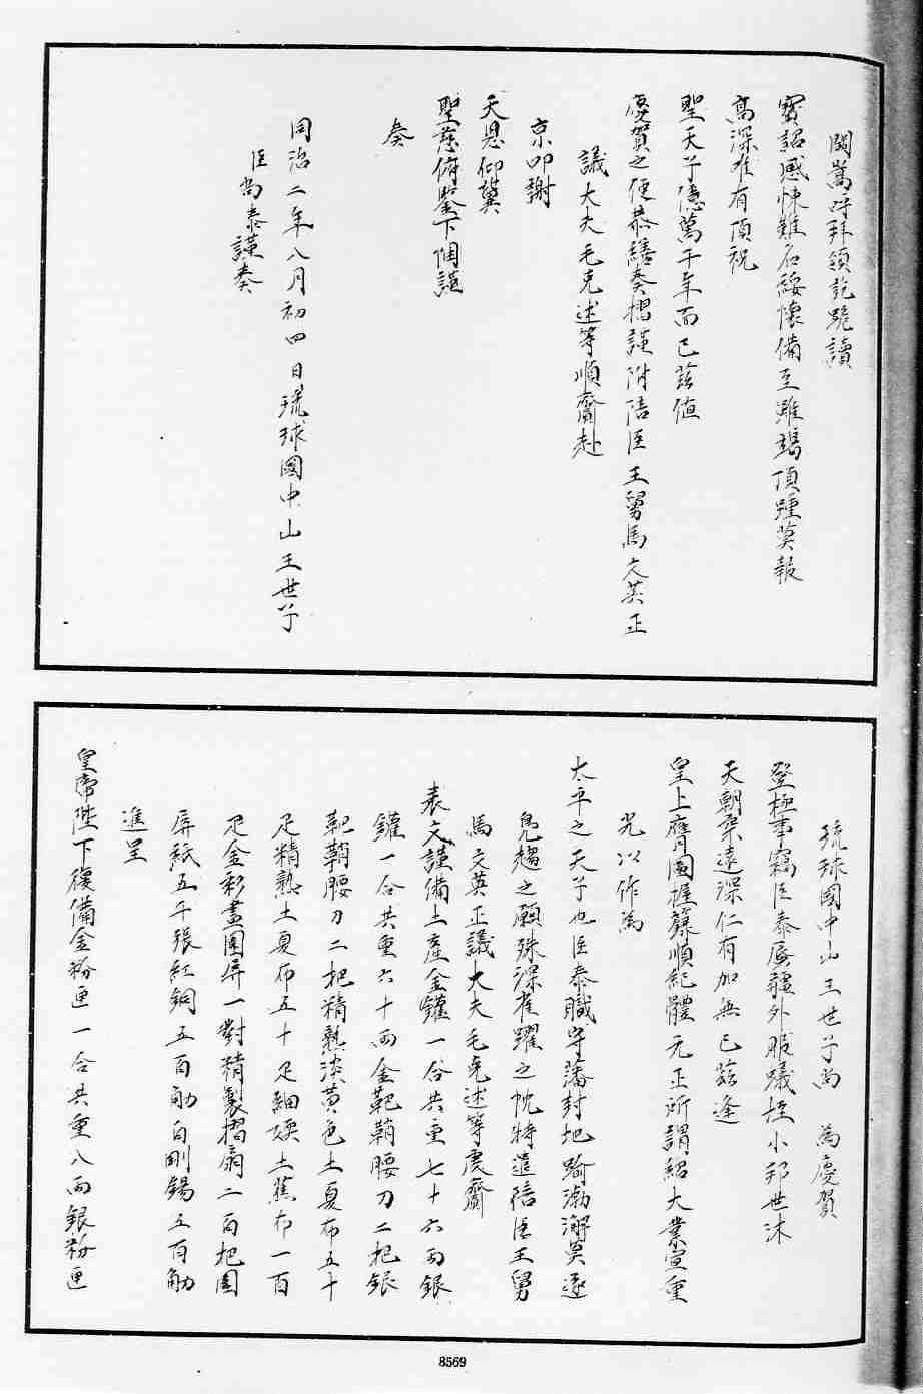 闕嵩呼拜領訖跪讀
寶詔感悚難名綏懷備至雖捐頂踵莫報
高深惟有頂祝
聖天子億萬千年而已茲值
慶賀之便恭繕奏摺謹附陪臣王舅馬文英正
議大夫毛克述等順齎赴
京叩謝
天恩仰冀
聖慈俯鑒下悃謹
奏
同治二年八月初四日琉球國中山王世子
臣尚泰謹奏
琉球國中山王世子尚 為慶賀
登極事竊臣泰辱疆外服蟻垤小邦世沐
天朝柔遠深仁有加無已茲逢
皇上膺圖握籙順紀體元正所謂紹大業宣重
光以作為
太平之天子也臣泰職守藩封地踰渤澥莫遂
鳧趨之願殊深雀躍之忱特遣陪臣王舅
馬文英正議大夫毛克述等虔齎
表文謹備土產金鑵一合共重七十六兩銀
鑵一合共重六十兩金靶鞘腰刀二把銀
靶鞘腰刀二把精熟淡黃色土夏布五十
疋精熟土夏布五十疋細嫩土蕉布一百
疋金彩畫圍屏一對精製摺扇二百把圍
屏紙五千張紅銅五百觔白剛錫五百觔
進呈
皇帝陛下復備金粉匣一合共重八兩銀粉匣
8569